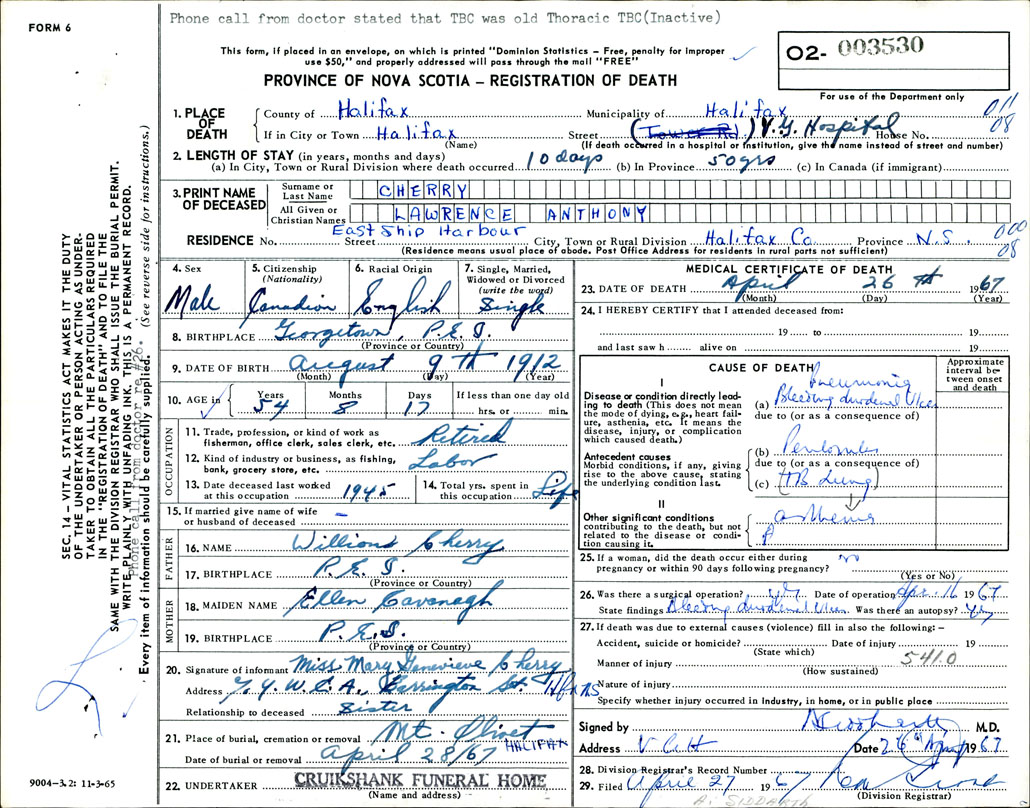 Phone call from doctor stated that TBC was old Thoracic TBC(Inactive)
FORM 6
This form, if placed in an envelope, on which is printed "Dominion Statistics – Free, penalty for improper
use $50," and properly addressed will pass through the mail "FREE"
O2- 003530
PROVINCE OF NOVA SCOTIA – REGISTRATION OF DEATH
For use of the Department only
1. PLACE OF DEATH
County of Halifax Municipality of Halifax 011
If in City or Town Halifax Street (Tower Rd) V.G. Hospital House No. 08
(Name) (If death occurred in a hospital or institution, give the name instead of street and number)
2. LENGTH OF STAY (in years, months and days)
(a) In City, Town or Rural Division where death occurred 10 days (b) In Province 50 yrs (c) In Canada (if immigrant)
3. PRINT NAME OF DECEASED
Surname or Last Name CHERRY
All Given or Christian Names LAWRENCE ANTHONY
East Ship Harbour
RESIDENCE No. Street City, Town or Rural Division Halifax Co. Province N.S. 000
08
(Residence means usual place of abode. Post Office Address for residents in rural parts not sufficient)
4. Sex
Male
5. Citizenship
(Nationality)
Canadian
6. Racial Origin
English
7. Single, Married,
Widowed or Divorced
(write the word)
Single
8. BIRTHPLACE Georgetown, P.E.I.
(Province or Country)
9. DATE OF BIRTH August 9th 1912
(Month) (Day) (Year)
10. AGE in Years Months Days If less than one day old
54 8 17 hrs. or min.
OCCUPATION
11. Trade, profession, or kind of work as
fisherman, office clerk, sales clerk, etc. Retired
12. Kind of industry or business, as fishing,
bank, grocery store, etc. Labor
13. Date deceased last worked
at this occupation 1945
14. Total yrs. spent in
this occupation Life
15. If married give name of wife
or husband of deceased –
FATHER
16. NAME William Cherry
17. BIRTHPLACE P.E.I.
(Province or Country)
MOTHER
18. MAIDEN NAME Ellen Cavanagh
19. BIRTHPLACE P.E.I.
(Province or Country)
20. Signature of informant Miss Mary Genevieve Cherry
Address Y.W.C.A., Barrington St. Hfx NS
Relationship to deceased Sister
21. Place of burial, cremation or removal Mt. Olivet
HALIFAX
Date of burial or removal April 28/67
22. UNDERTAKER CRUIKSHANK FUNERAL HOME
(Name and address)
MEDICAL CERTIFICATE OF DEATH
23. DATE OF DEATH April 26th 1967
(Month) (Day) (Year)
24. I HEREBY CERTIFY that I attended deceased from:
19 to 19
and last saw h alive on 19
CAUSE OF DEATH
Approximate
interval be-
tween onset
and death
I
Disease or condition directly lead-
ing to death (This does not mean
the mode of dying, e.g., heart fail-
ure, asthenia, etc. It means the
disease, injury, or complication
which caused death.)
Pneumonia
(a) Bleeding duodenal Ulcer
due to (or as a consequence of)
Antecedent causes
Morbid conditions, if any, giving
rise to the above cause, stating
the underlying condition last.
(b)
due to (or as a consequence of)
(c) (TB Lung)
II
Other significant conditions
contributing to the death, but not
related to the disease or condi-
tion causing it.
25. If a woman, did the death occur either during
pregnancy or within 90 days following pregnancy? no
(Yes or No)
26. Was there a surgical operation? yes Date of operation Apr. 16 1967
State findings Bleeding duodenal Ulcer Was there an autopsy? yes
27. If death was due to external causes (violence) fill in also the following: –
Accident, suicide or homicide? Date of injury 19
(State which)
Manner of injury 541.0
(How sustained)
Nature of injury
Specify whether injury occurred in Industry, in home, or in public place
Signed by M.D.
Address V G H Date 26th April 1967
28. Division Registrar's Record Number
29. Filed April 27 1967
(Division Registrar)
A. SIDDARTH
SEC. 14 – VITAL STATISTICS ACT MAKES IT THE DUTY
OF THE UNDERTAKER OR PERSON ACTING AS UNDER-
TAKER TO OBTAIN ALL THE PARTICULARS REQUIRED
IN THE "REGISTRATION OF DEATH" AND TO FILE THE
SAME WITH THE DIVISION REGISTRAR WHO SHALL ISSUE THE BURIAL PERMIT.
WRITE PLAINLY WITH UNFADING INK. THIS IS A PERMANENT RECORD.
Phone call from doctor re #26.
Every item of information should be carefully supplied. (See reverse side for instructions.)
9004–3.2: 11-3-65